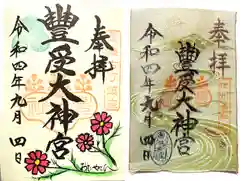 奉拝
豊受大神宮
令和四年九月四日
奉拝
豊受大神宮
令和四年九月四日